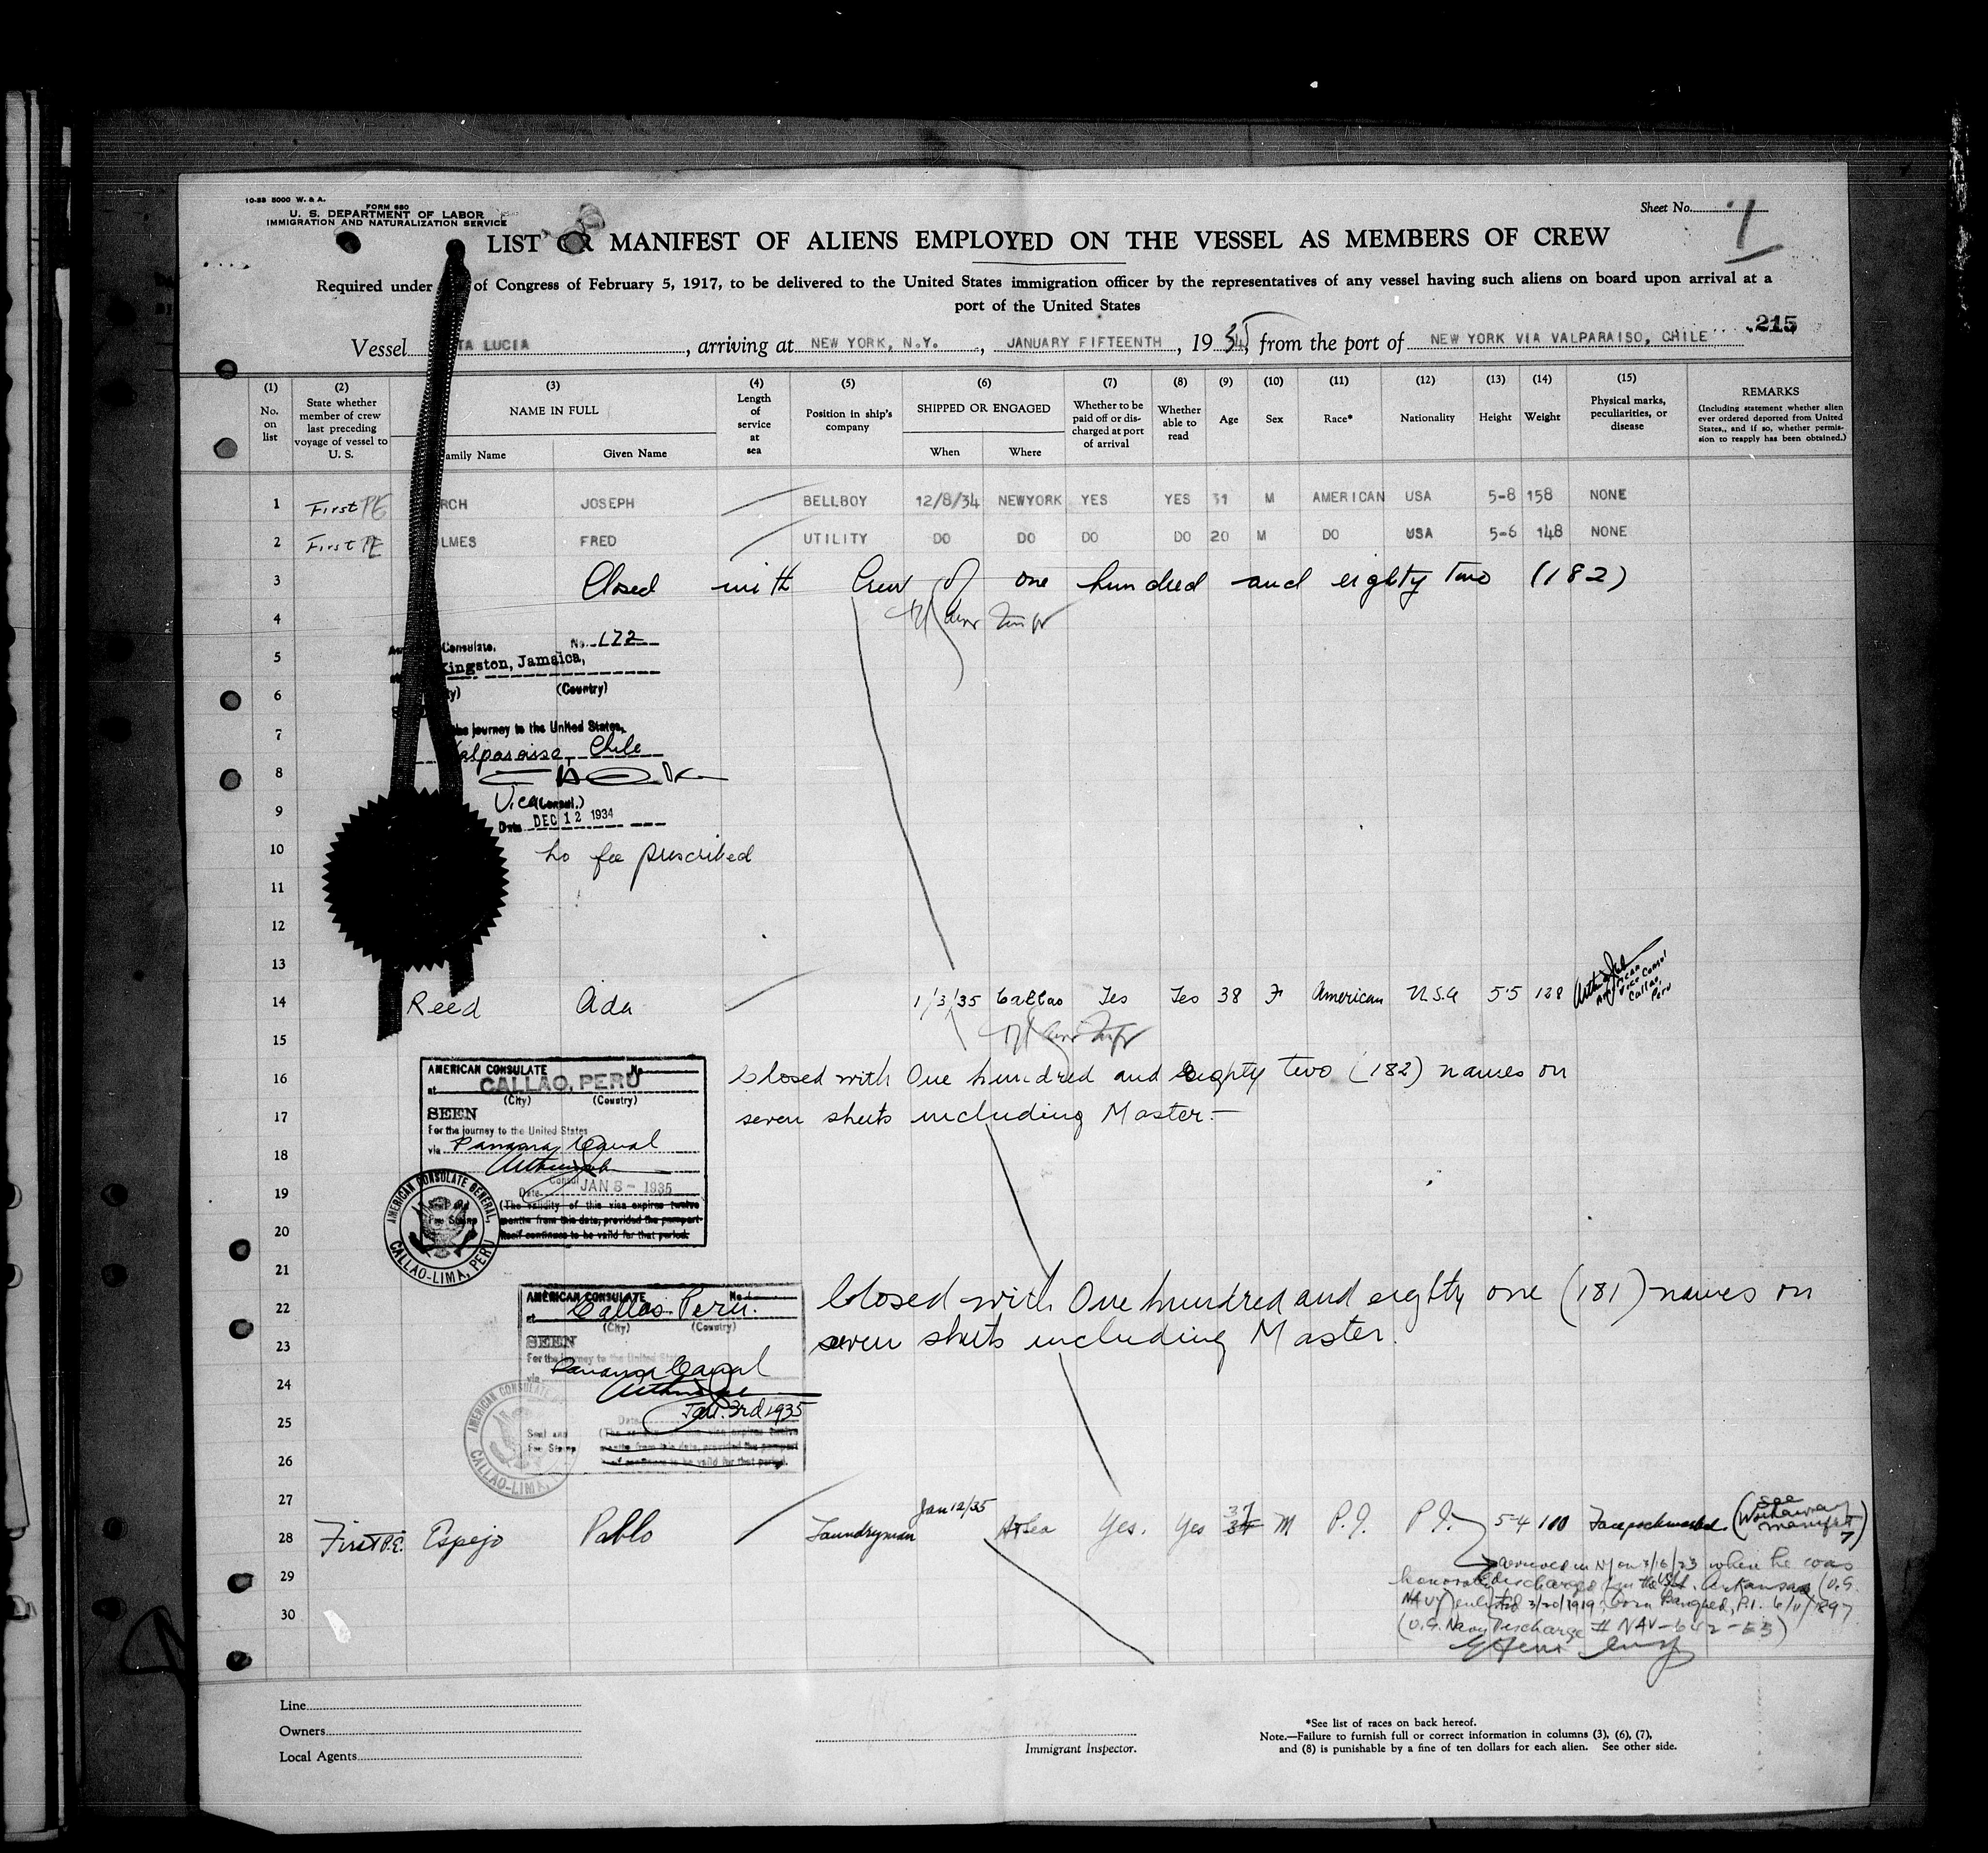 10-33 5000 W. & A.
FORM 680
U. S. DEPARTMENT OF LABOR
IMMIGRATION AND NATURALIZATION SERVICE
Sheet No. 7
LIST OR MANIFEST OF ALIENS EMPLOYED ON THE VESSEL AS MEMBERS OF CREW
Required under of Congress of February 5, 1917, to be delivered to the United States immigration officer by the representatives of any vessel having such aliens on board upon arrival at a
port of the United States
215
Vessel TA LUCIA, arriving at NEW YORK, N.Y., JANUARY FIFTEENTH, 19 from the port of NEW YORK VIA VALPARAISO, CHILE
(1) No. on list
(2) State whether member of crew last preceding voyage of vessel to U. S.
(3) NAME IN FULL
amily Name
Given Name
(4) Length of service at sea
(5) Position in ship's company
(6) SHIPPED OR ENGAGED
When
Where
(7) Whether to be paid off or discharged at port of arrival
(8) Whether able to read
(9) Age
(10) Sex
(11) Race*
(12) Nationality
(13) Height
(14) Weight
(15) Physical marks, peculiarities, or disease
REMARKS
(Including statement whether alien ever ordered deported from United States., and if so, whether permission to reapply has been obtained.)
1 First PE RCH JOSEPH BELLBOY 12/8/34 NEWYORK YES YES 31 M AMERICAN USA 5-8 158 NONE
2 First PE LMES FRED UTILITY DO DO DO DO 20 M DO USA 5-6 148 NONE
3 Closed with Crew of one hundred and eighty two (182)
4
5 Consulate, No. 172
Kingston, Jamaica,
6 (Country)
7 the journey to the United States,
Valparaiso, Chile
8
Vice (Consul.)
9 Date DEC 12 1934
10 no fee prescribed
11
12
13
14 Reed Aida 1/3/35 Callao Yes Yes 38 F American U.S.A 5'5 128
American
Vice Consul
Callao,
Peru
15
16 closed with One hundred and eighty two (182) names on
17 seven sheets including Master.—
AMERICAN CONSULATE No.
at CALLAO, PERU
(City) (Country)
SEEN
For the journey to the United States
18 via Panama Canal
19 Consul
Date JAN 3- 1935
(The validity of this visa expires twelve
20 months from this date, provided the passport
itself continues to be valid for that period.
AMERICAN CONSULATE GENERAL,
CALLAO-LIMA, PERU
21
22 Closed with One hundred and eighty one (181) names on
23 seven sheets including Master.
AMERICAN CONSULATE No.
at Callao Peru.
(City) (Country)
SEEN
For the journey to the United States
24 via Panama Canal
25 Date Jan. 3rd 1935
Seal and
Fee Stamp
(The validity of this visa expires twelve
months from this date, provided the passport
26 itself continues to be valid for that period.
AMERICAN CONSULATE
CALLAO-LIMA,
27
28 First P.E. Espejo Pablo Laundryman Jan 12/35 At Sea Yes. Yes 37 M P.I. P.I. 5 4 110 Face pockmarked (See Workaway manifest 7)
29 arrived in NY on 3/16/23 when he was
honorably discharged from the USS. Arkansas (U.S.
30 NAVY) enlisted 3/20/1919; born Bangued, P.I. 6/11/1897
(U.S. Navy Discharge # NAV-642-E3)
Line
Owners
Local Agents
Immigrant Inspector.
*See list of races on back hereof.
Note.—Failure to furnish full or correct information in columns (3), (6), (7),
and (8) is punishable by a fine of ten dollars for each alien. See other side.